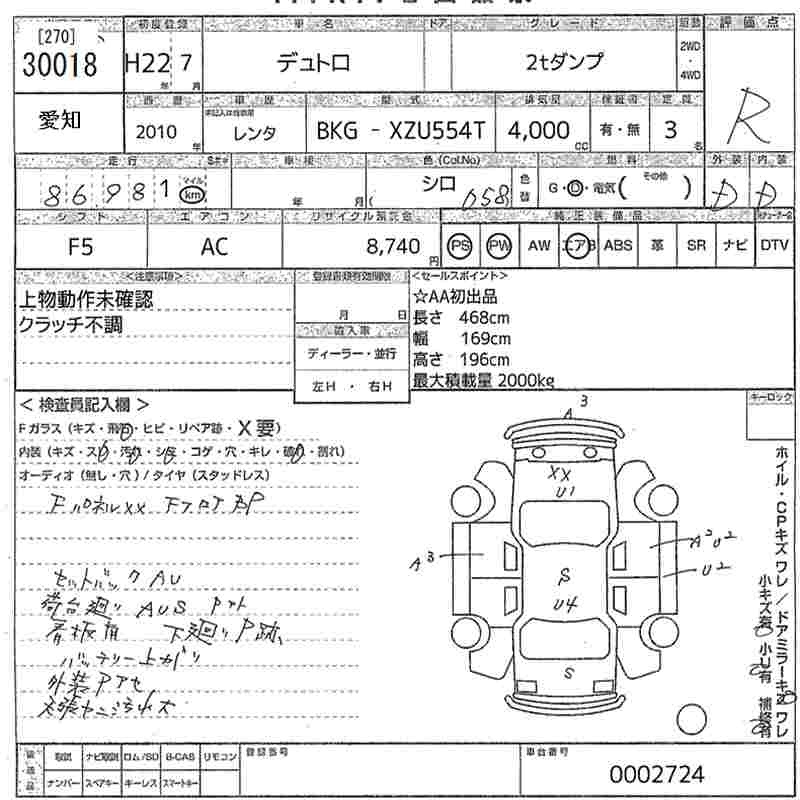 [270]
30018
初度登録 車名 ドア グレード 駆動 評価点
H22 7 デュトロ 2tダンプ 2WD・4WD
年 月
愛知
西暦 車歴 型式 排気量 保証書 定員
2010年 レンタ BKG - XZU554T 4,000cc 有・無 3名 R
走行 車検 色(Col.No) 燃料 外装 内装
86981 マイル km 年 月 シロ (058) 色替 G・D・電気( その他 ) D D
シフト エアコン リサイクル預託金 純正装備品
F5 AC 8,740円 PS PW AW エアB ABS 革 SR ナビ DTV
<注意事項> 登録書類有効期限 <セールスポイント>
上物動作未確認
クラッチ不調
月 日
輸入車
ディーラー・並行
左H ・ 右H
☆AA初出品
長さ 468cm
幅 169cm
高さ 196cm
最大積載量 2000kg
キーロック
< 検査員記入欄 >
Fガラス(キズ・飛石・ヒビ・リペア跡・X要)
内装(キズ・スレ・汚れ・シミ・コゲ・穴・キレ・破れ・割れ)
オーディオ(無し・穴)/タイヤ(スタッドレス)
FパネルXX Fフロア部P
セットバックAU
荷台廻り AUS
看板有 下廻りP跡
バッテリー上がり
外装Pアセ
A3
XX
U1
A3
S
U4
A2 U2
U2
S
ホイル・CPキズ ワレ / ドアミラーキズ ワレ
小キズ有 小U有 補修有
備品 取説 ナビ取説 ロム/SD B-CAS リモコン
ナンバー スペアキー キーレス スマートキー
登録番号
車台番号
0002724